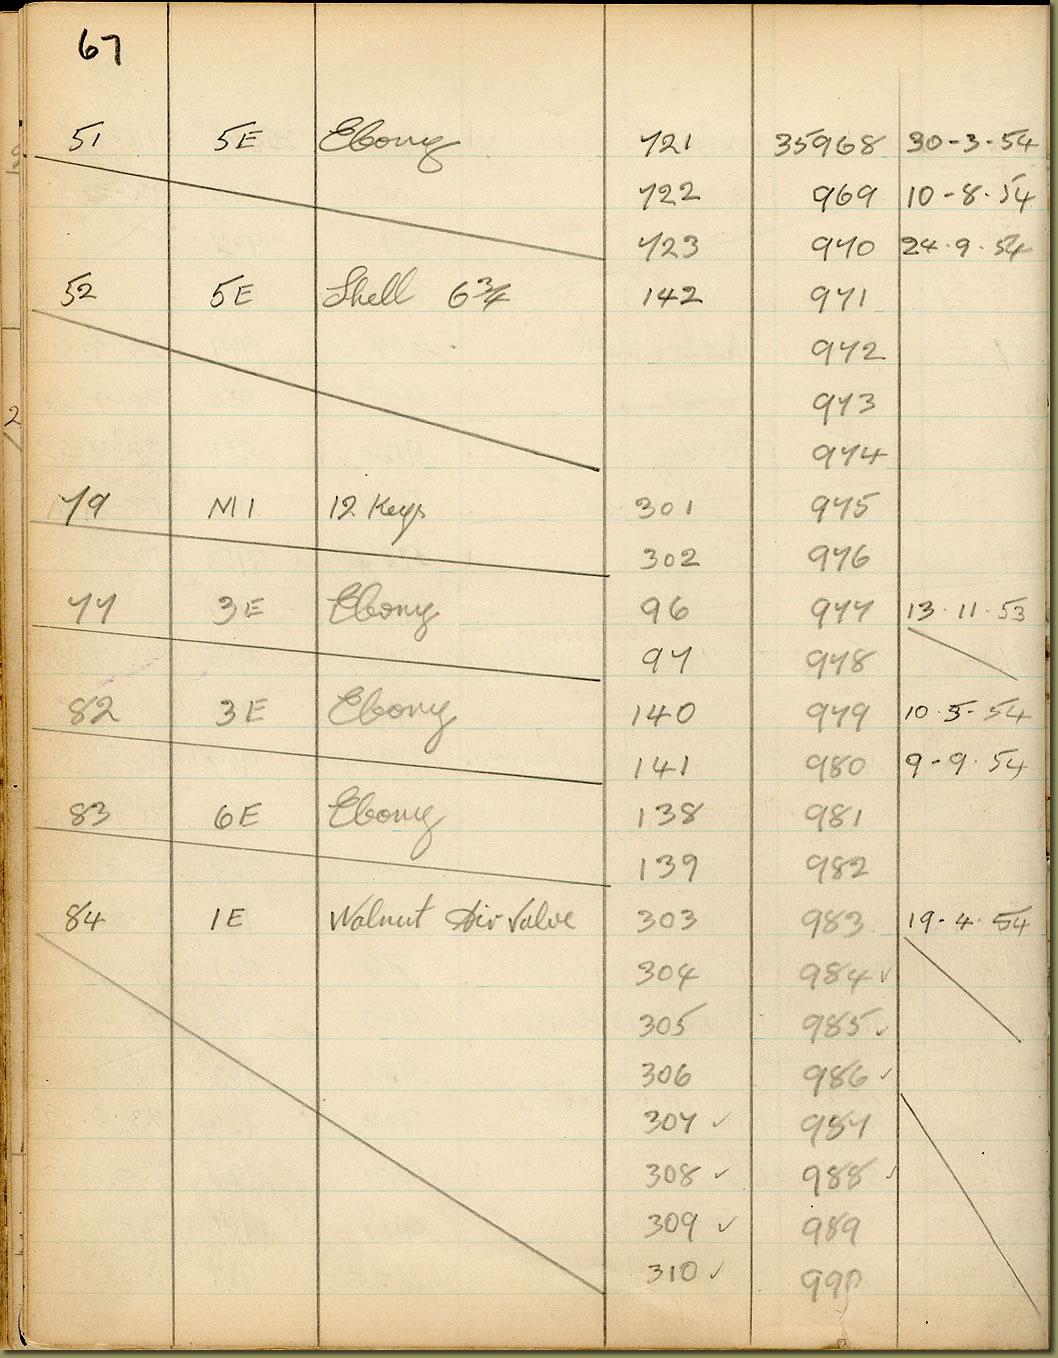 67
51 5E Ebony 721 35968 30-3-54
722 969 10-8-54
723 970 24.9.54
52 5E Shell 6 3/4 142 971
972
973
974
79 M1 12 Keys 301 975
302 976
77 3E Ebony 96 977 13.11.53
97 978
82 3E Ebony 140 979 10.5-54
141 980 9-9.54
83 6E Ebony 138 981
139 982
84 1E Walnut Air Valve 303 983 19-4.54
304 984 ✓
305 985 ✓
306 986 ✓
307 ✓ 987
308 ✓ 988 ✓
309 ✓ 989
310 ✓ 990